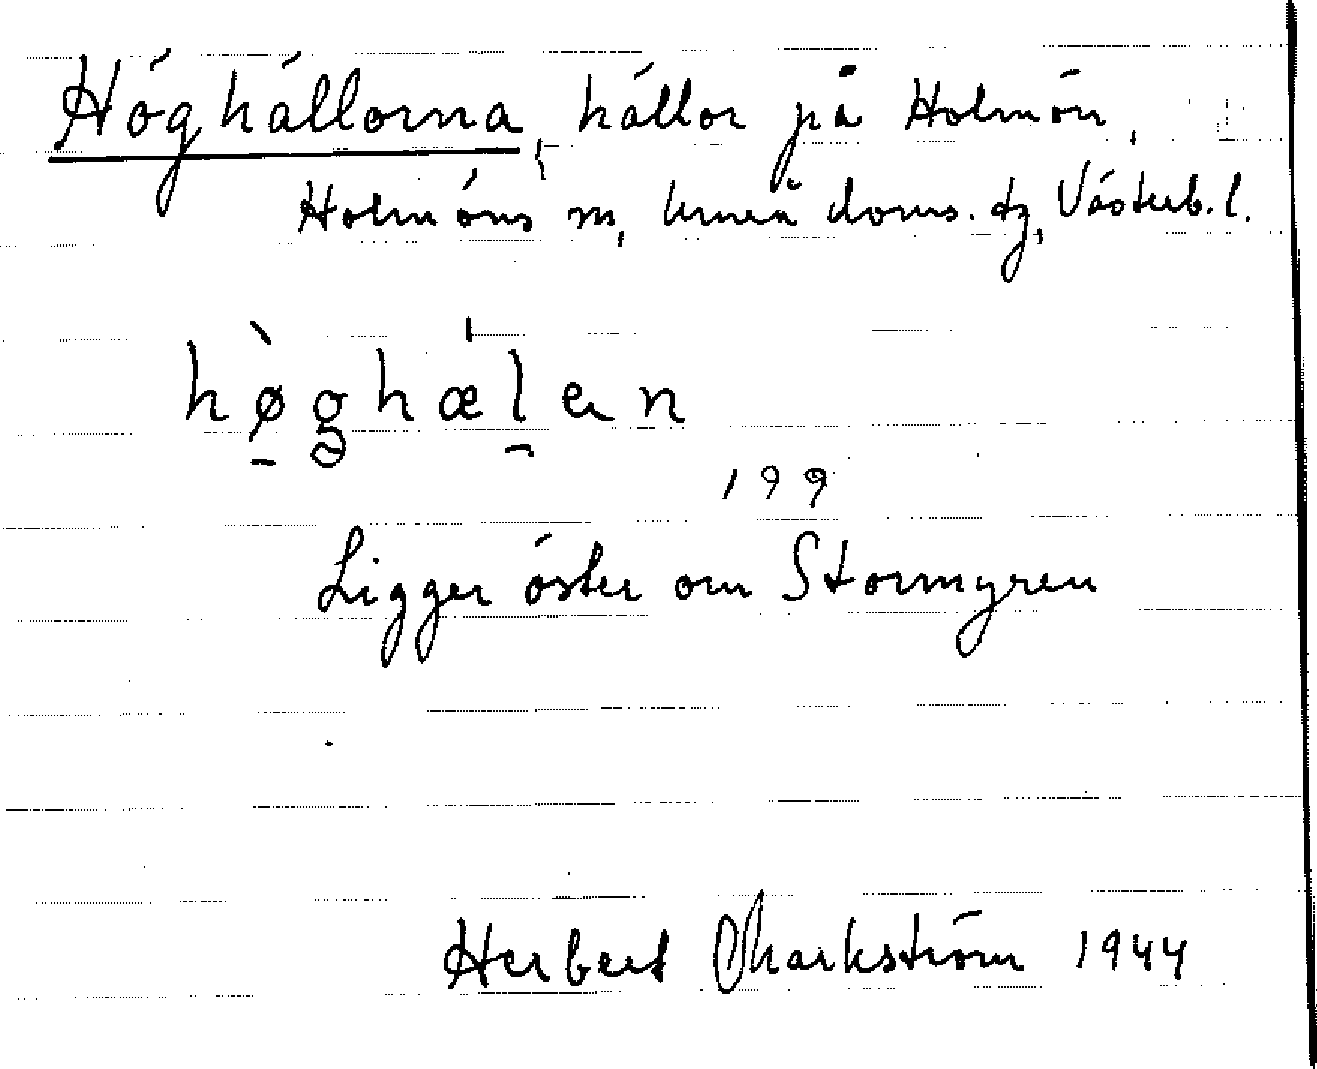 Höghällorna, hällor på Holmön,
Holmöns sn, Umeå doms. dg, Västerb. l.
hø̀g̥hæ'lan
199
Ligger öster om Stormyren
Herbert Markström 1944